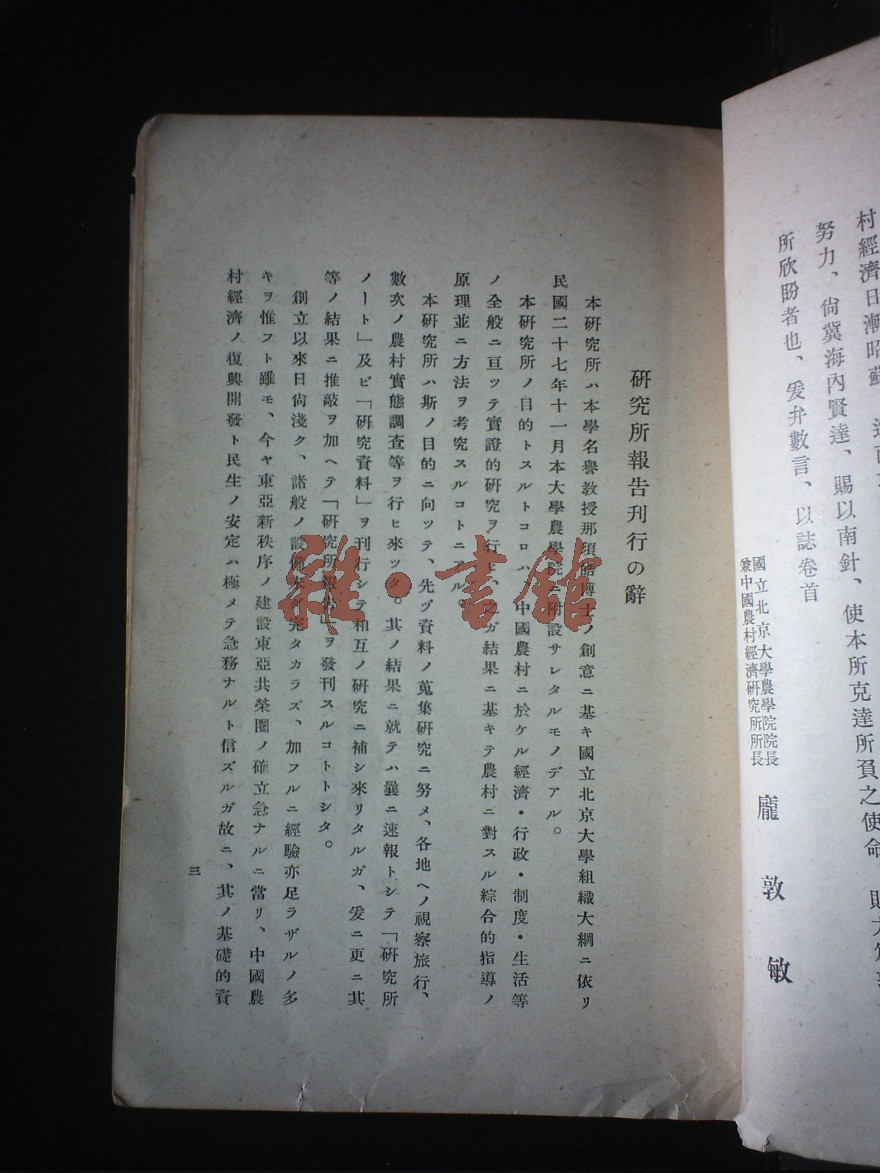 村經濟日漸昭蘇
努力、尙冀海內賢達、賜以南針、使本所克達所負之使命
所欣盼者也、爰弁數言、以誌卷首
國立北京大學農學院院長
兼中國農村經濟研究所所長
龐敦敏
研究所報告刊行の辭
本研究所ハ本學名譽敎授那須皓博士ノ創意ニ基キ國立北京大學組織大綱ニ依リ
民國二十七年十一月本大學農學院ニ附設サレタルモノデアル。
本研究所ノ目的トスルトコロハ、中國農村ニ於ケル經濟・行政・制度・生活等
ノ全般ニ亘ツテ實證的研究ヲ行ヒ、ガ結果ニ基キテ農村ニ對スル綜合的指導ノ
原理並ニ方法ヲ考究スルコトニアル。
本研究所ハ斯ノ目的ニ向ツテ、先ヅ資料ノ蒐集研究ニ努メ、各地ヘノ視察旅行、
數次ノ農村實態調査等ヲ行ヒ來ツタ。其ノ結果ニ就テハ曩ニ速報トシテ「研究所
ノート」及ビ「研究資料」ヲ刊行シテ相互ノ研究ニ補シ來リタルガ、爰ニ更ニ其
等ノ結果ニ推敲ヲ加ヘテ「研究所報告」ヲ發刊スルコトトシタ。
創立以來日尙淺ク、諸般ノ設備未ダ完タカラズ、加フルニ經驗亦足ラザルノ多
キヲ惟フト雖モ、今ヤ東亞新秩序ノ建設東亞共榮圈ノ確立急ナルニ當リ、中國農
村經濟ノ復興開發ト民生ノ安定ハ極メテ急務ナルト信ズルガ故ニ、其ノ基礎的資
三
雜・書館